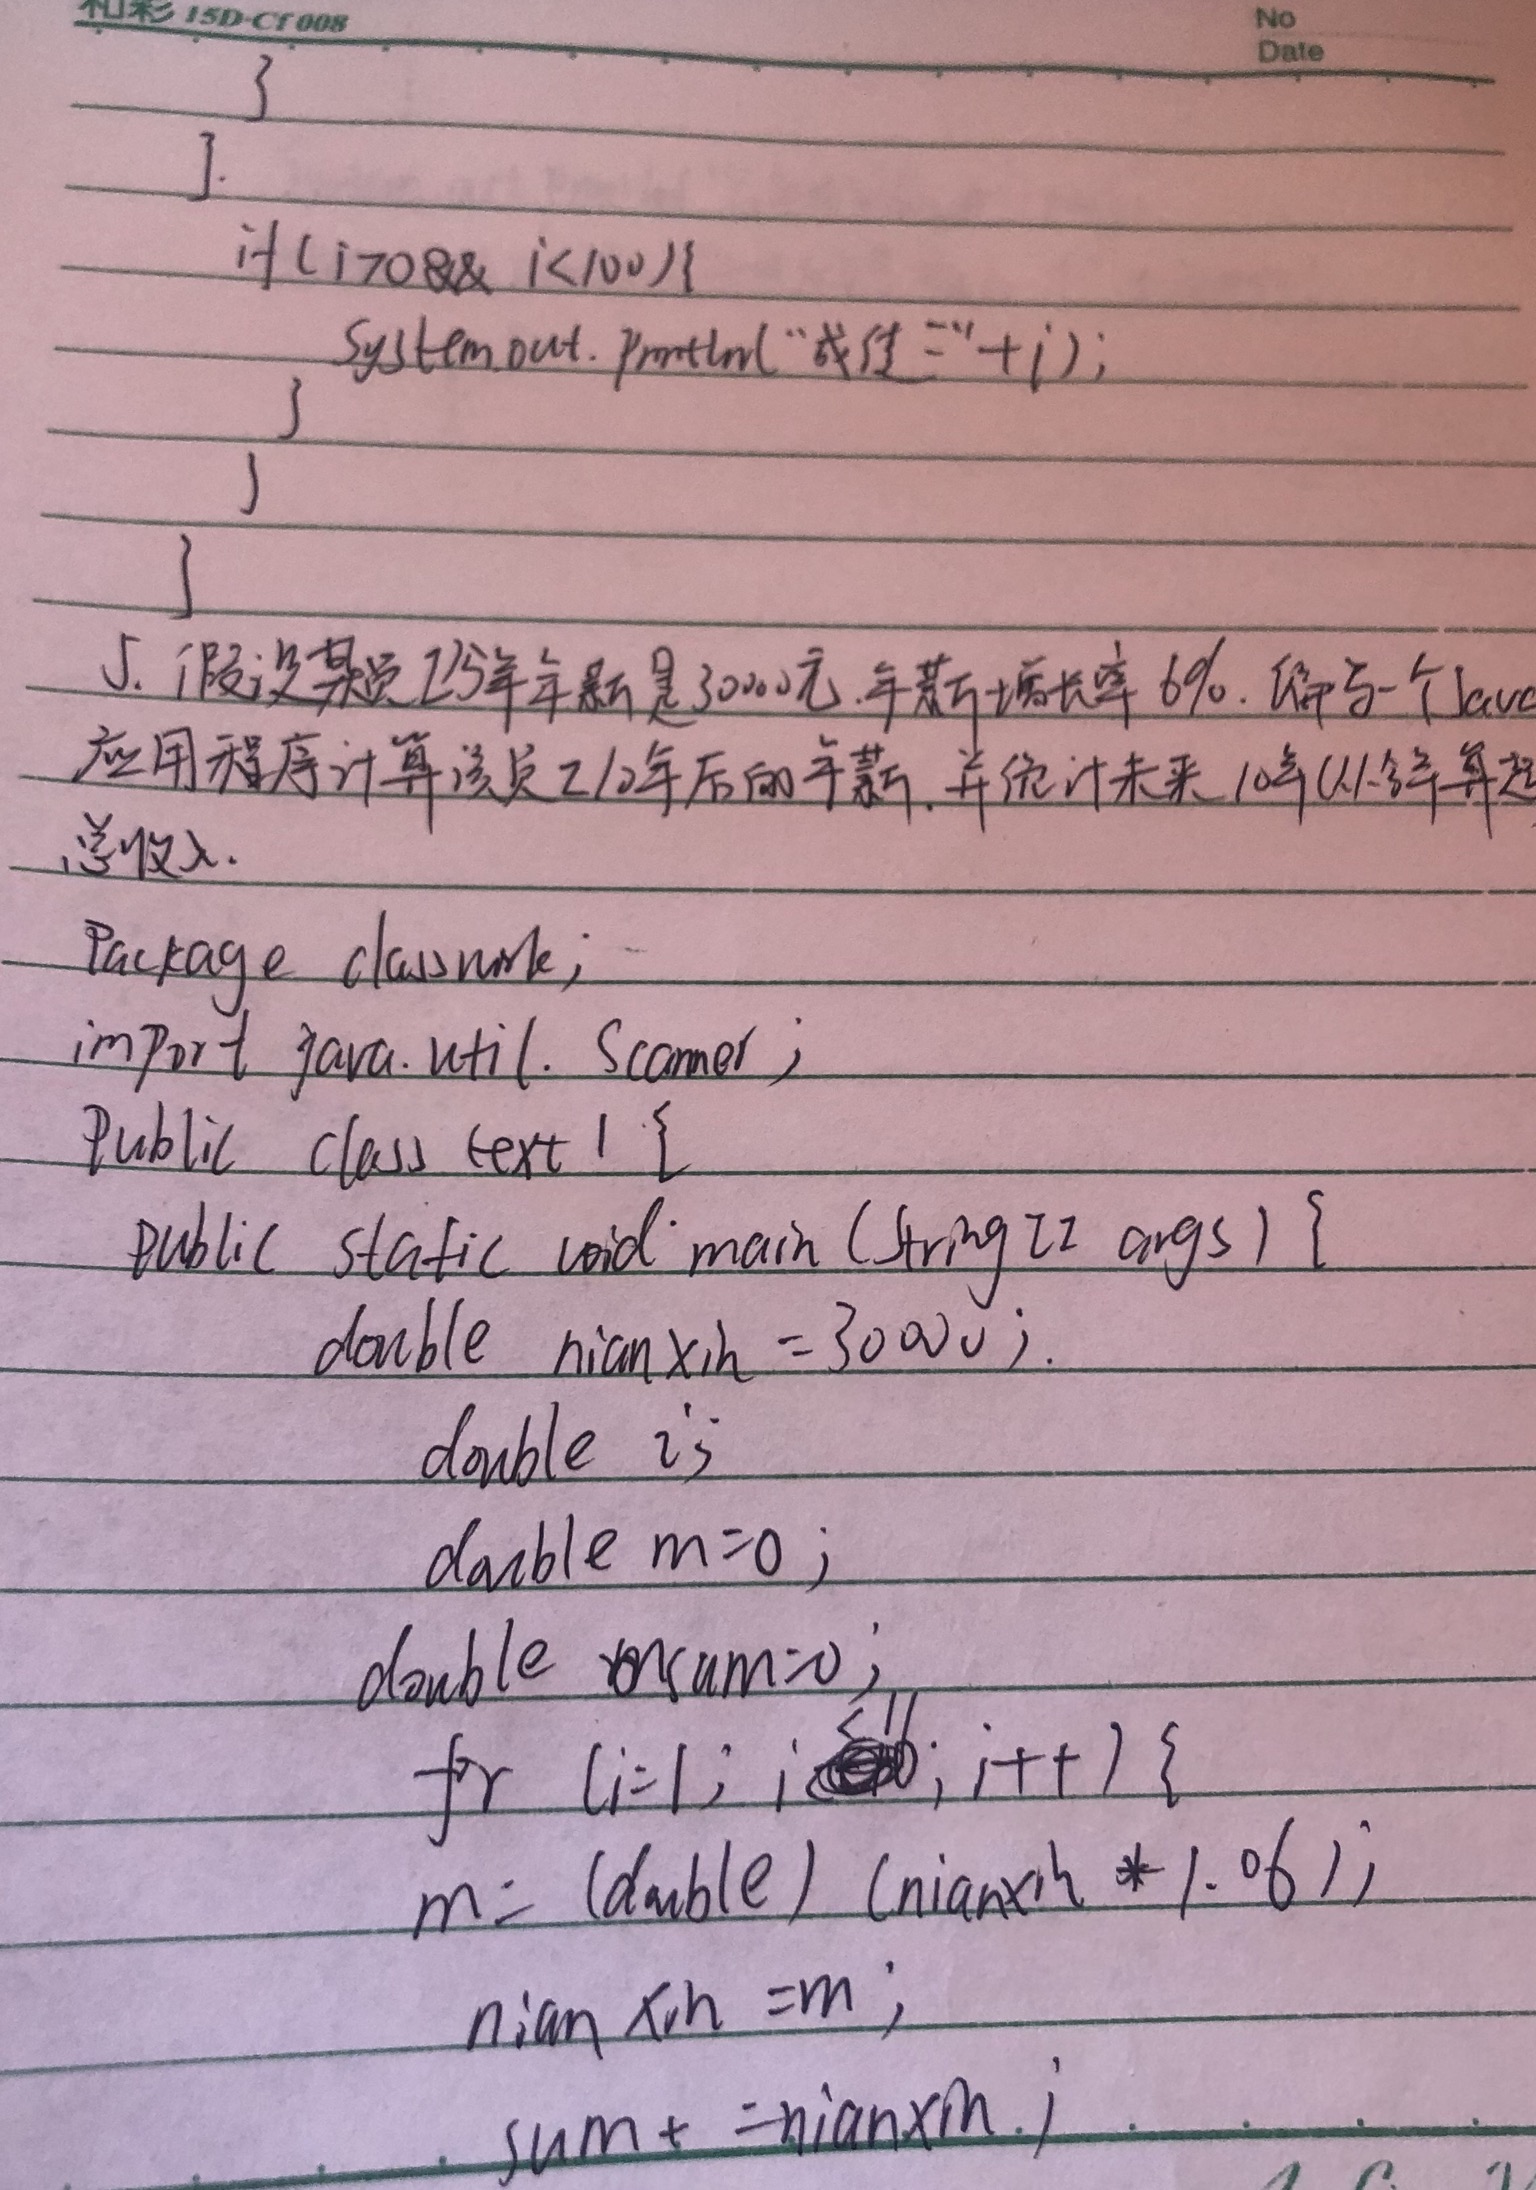 和彩 15D-CT008
No
Date
}
}.
if (i>0&& i<100){
System.out.println("成佳="+i);
}
}
}
5. 假设某员工今年年薪是30000元.年薪增长率6%.编写一个Java
应用程序计算该员工10年后的年薪.并统计未来10年(从今年算起
总收入.
Package classwork;
import java.util.Scanner;
Public class text1 {
public static void main (String[] args) {
double nianxin =30000;.
double i;
double m=0;
double sum=0;
for (i=1; i<11; i++) {
m= (double) (nianxin * 1.06);
nianxin =m;
sum+ =nianxin.;